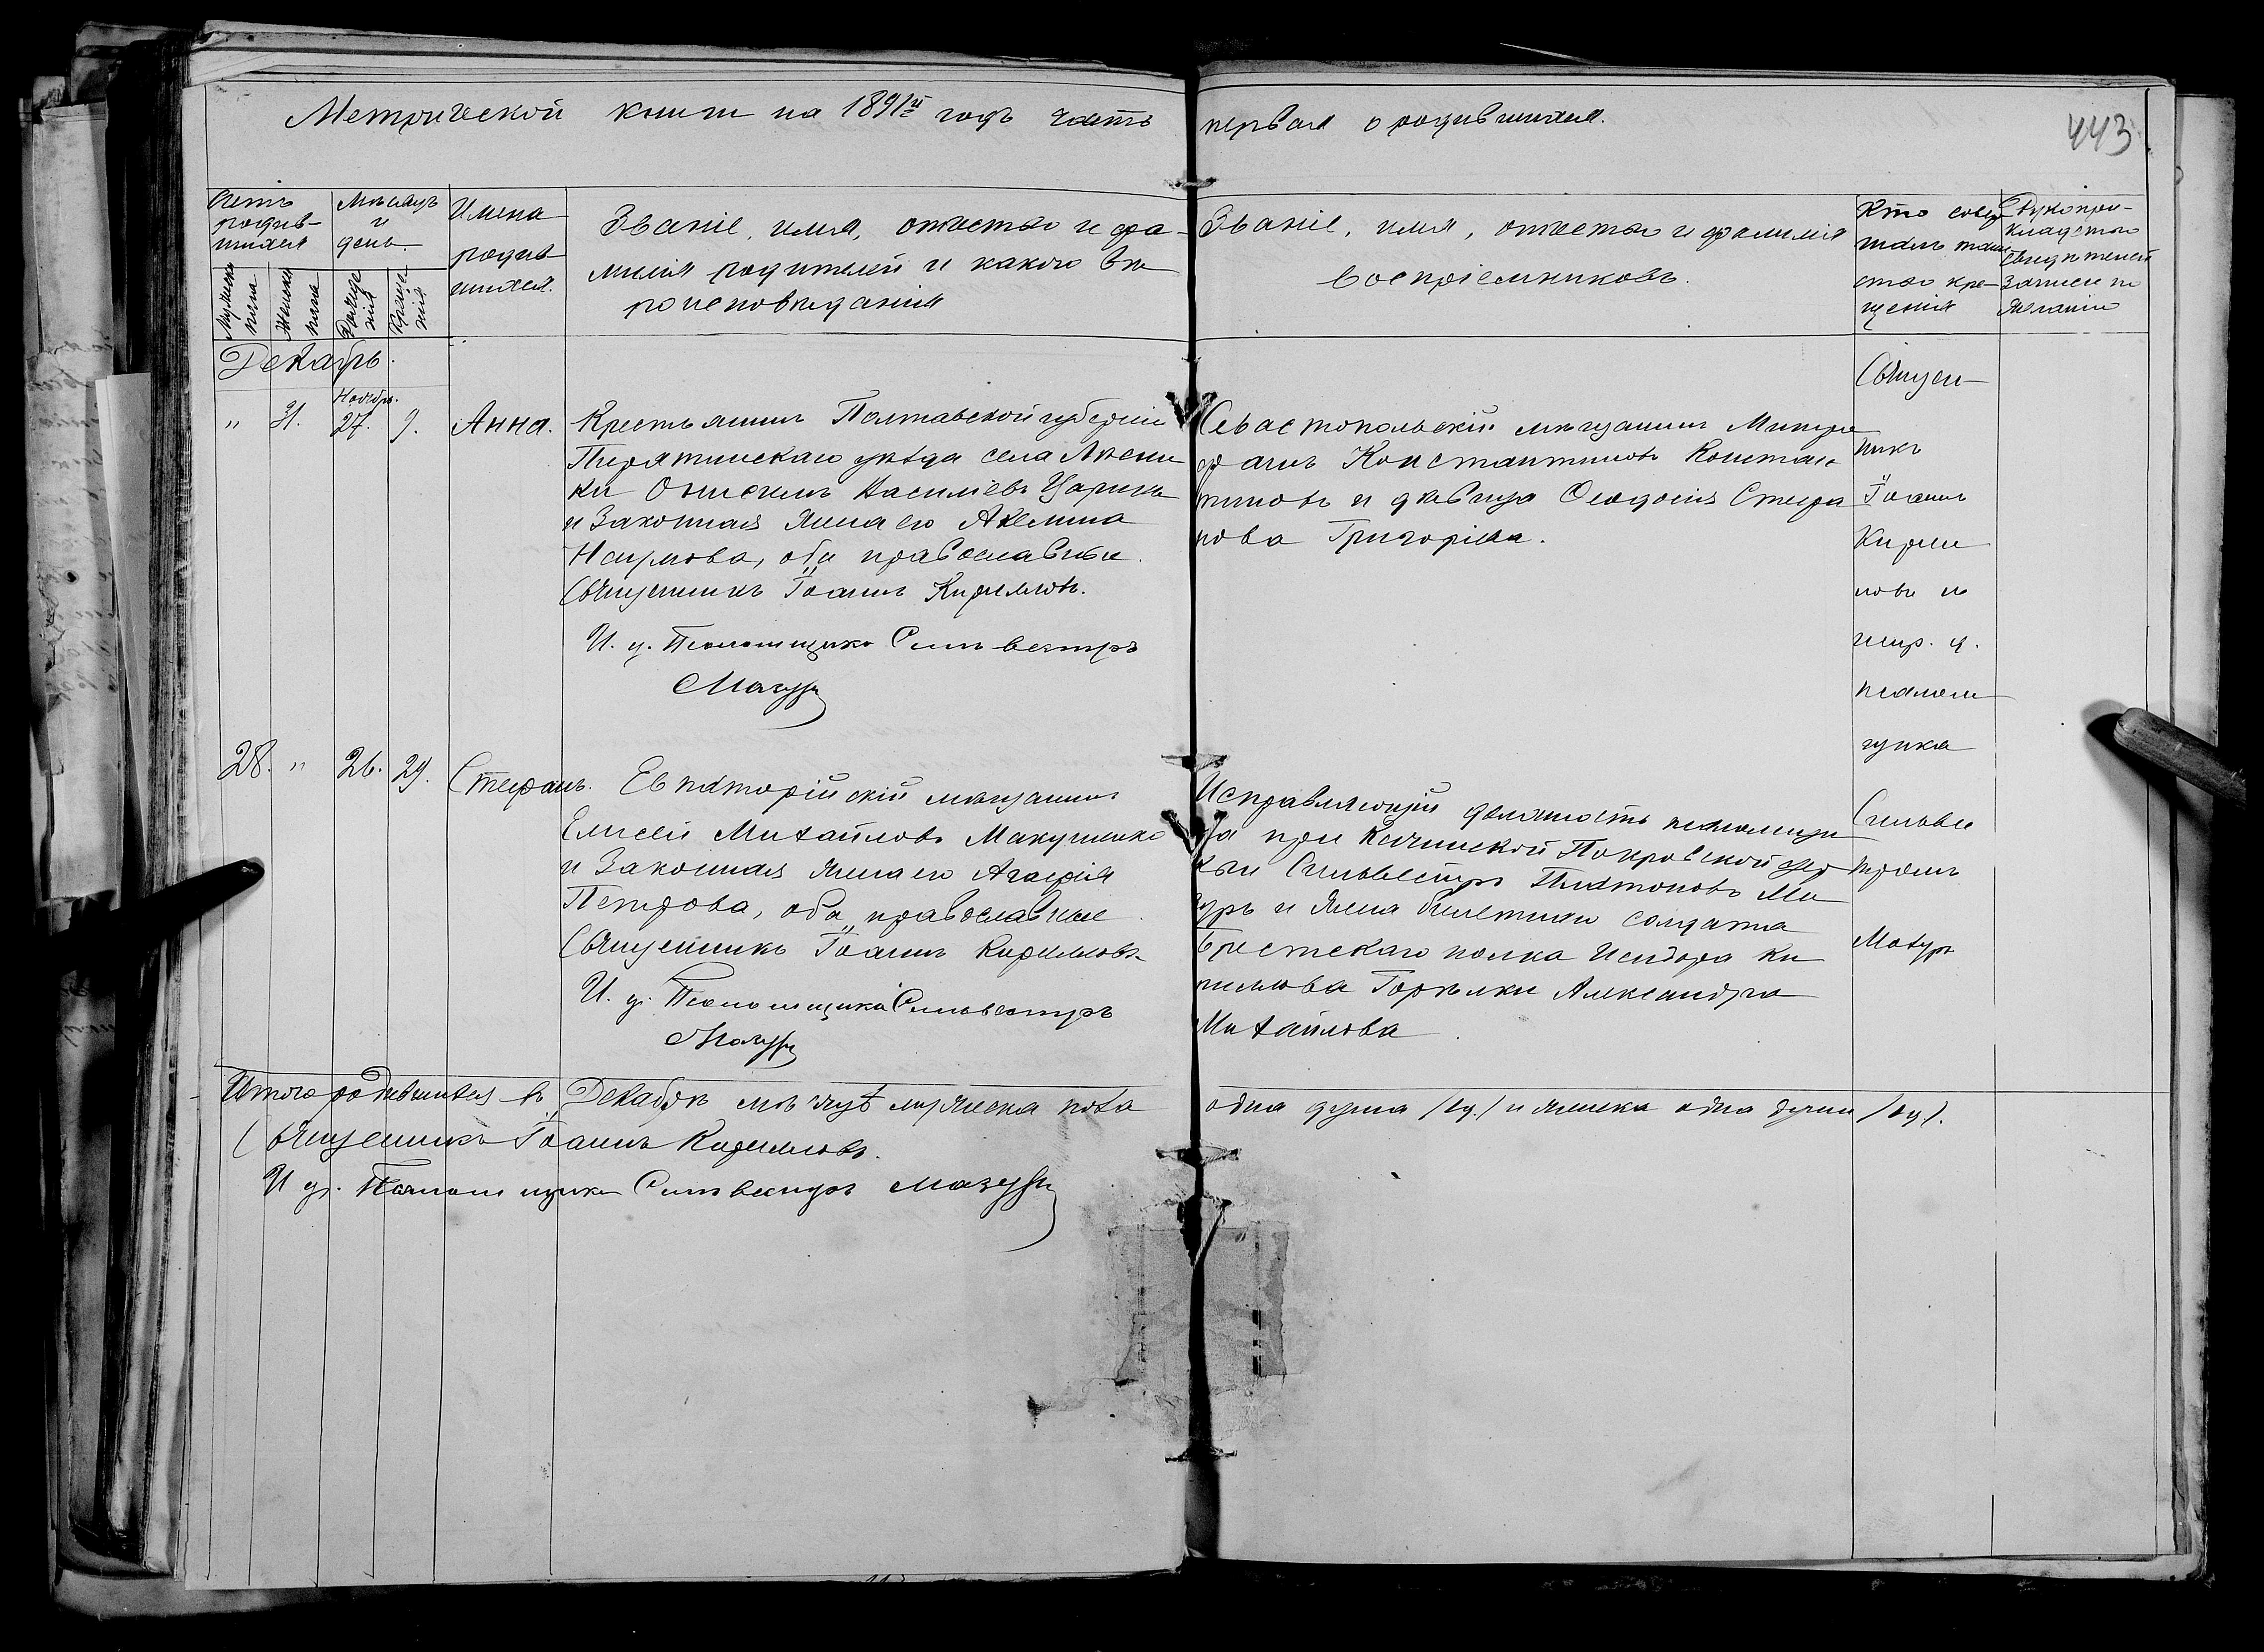 Метрической книги на 1891й годъ часть первая о родившихся.
443
Счетъ родив-
шихся
Мужеска
пола.
Женска
пола
Мѣсяцъ
и
день
Рожде
нія
Креще
нія
Имена
родив-
шихся.
Званіе, имя, отчество и фа-
милія родителей и какого вѣ
роисповѣданія
Званіе, имя, отчество и фамилія
воспріемниковъ.
Кто совер
шалъ таин
ство кре-
щенія
Рукопри-
кладство
свидѣтелей
записи по
желанію
Декабрь.
Ноябрь.
" 31. 27. 9. Анна.
Крестьянинъ Полтавской губерніи
Пирятинскаго уѣзда села
ки Онисимъ Васильевъ Царикъ
и законная жена его Акелина
Наумова, оба православные.
Священникъ Іоаннъ Кирилловъ.
И. д. Псаломщика Сильвестръ
Мазуръ
Севастопольскій мѣщанинъ Митро
фанъ Константиновъ Констан
тиновъ и дѣвица Ѳеодосія Стефа
нова Григорьева.
Священ-
никъ
Іоаннъ
Кирил
ловъ съ
испр. д.
псалом
щика
Сильве
стромъ
Мазуръ
28. " 26. 29. Стефанъ.
Евпаторійскій мѣщанинъ
Елисей Михайловъ Макушенко
и законная жена его Агафія
Петрова, оба православные
Священникъ Іоаннъ Кирилловъ
И. д. Псаломщика Сильвестръ
Мазуръ
Исправляющій должность псаломщи
ка при Качинской Покровской цер
кви Сильвестръ Платоновъ Ма
зуръ и жена билетнаго солдата
Брестскаго полка Исидора Ки
риллова Горѣлки Александра
Михайлова.
Итого родившихся въ Декабрѣ мѣсяцѣ мужеска пола одна душа /1д./ и женска одна душа /1д./.
Священникъ Іоаннъ Кирилловъ.
И д. Псаломщика Сильвестръ Мазуръ